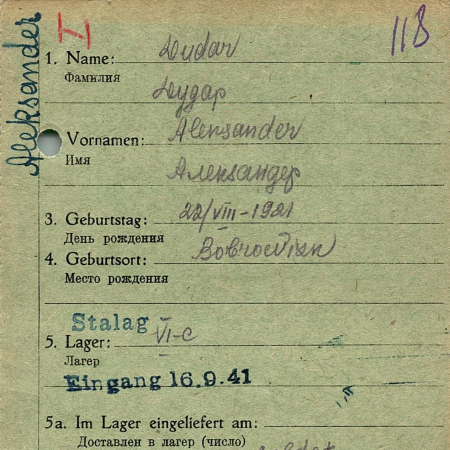 Aleksander
V
118
1. Name: Dudar
Фамилия
Дудар
Vornamen: Alexsander
Имя
Александер
3. Geburtstag: 22/VIII-1921
День рождения
4. Geburtsort: Bobroevizn
Место рождения
Stalag
5. Lager: VI-C
Лагер
Eingang 16.9.41
5a. Im Lager eingeliefert am:
Доставлен в лагер (число)